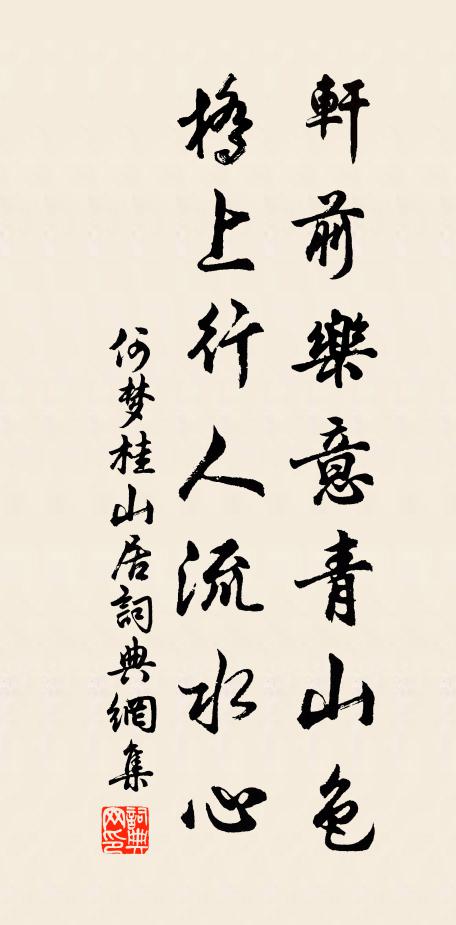 軒前樂意青山色
橋上行人流水心
何梦桂山居詞典網集
詞典网印